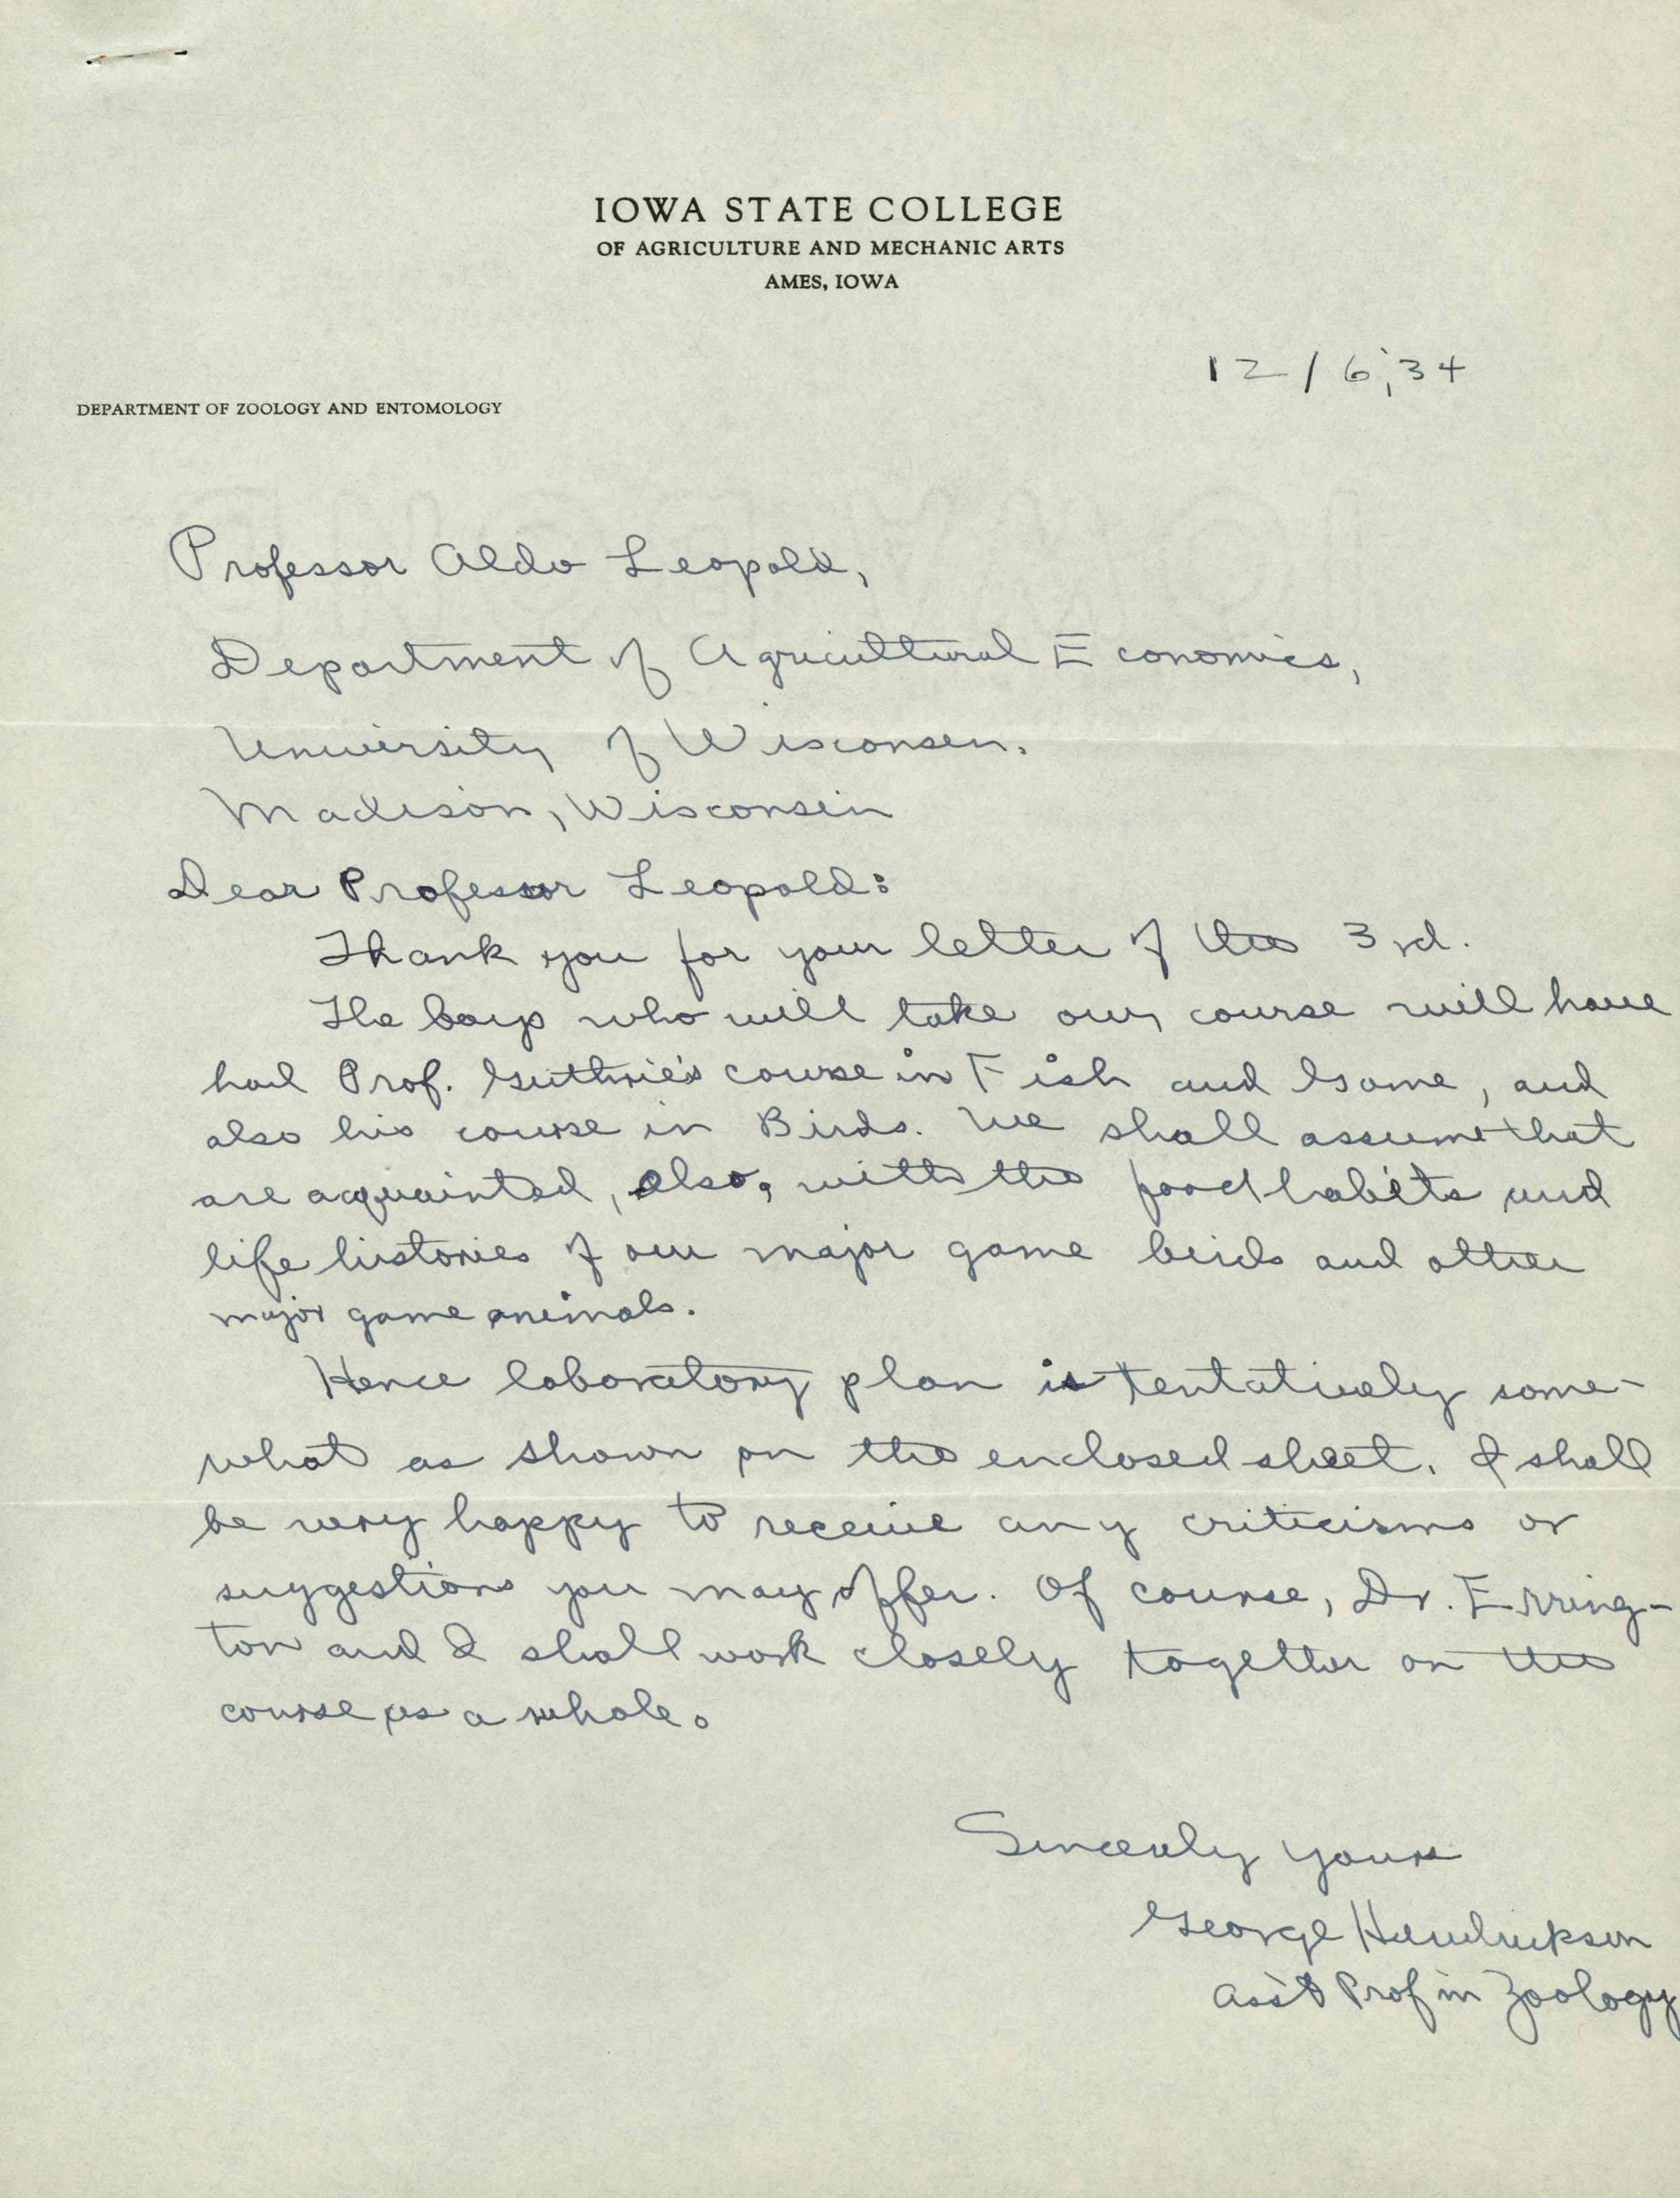 IOWA STATE COLLEGE
OF AGRICULTURE AND MECHANIC ARTS
AMES, IOWA
12/6,'34
DEPARTMENT OF ZOOLOGY AND ENTOMOLOGY
Professor Aldo Leopold,
Department of Agricultural Economics,
University of Wisconsin.
Madison, Wisconsin
Dear Professor Leopold:
Thank you for your letter of the 3rd.
The boys who will take our course will have
had Prof. Guthrie's course in Fish and Game, and
also his course in Birds. We shall assume that
are acquainted, also, with the food habits and
life histories of our major game birds and other
major game animals.
Hence laboratory plan is tentatively some-
what as shown on the enclosed sheet. I shall
be very happy to receive any criticisms or
suggestions you may offer. Of course, Dr. Erring-
ton and I shall work closely together on the
course as a whole.
Sincerely yours
George Hendrickson
Ass't Prof in Zoology